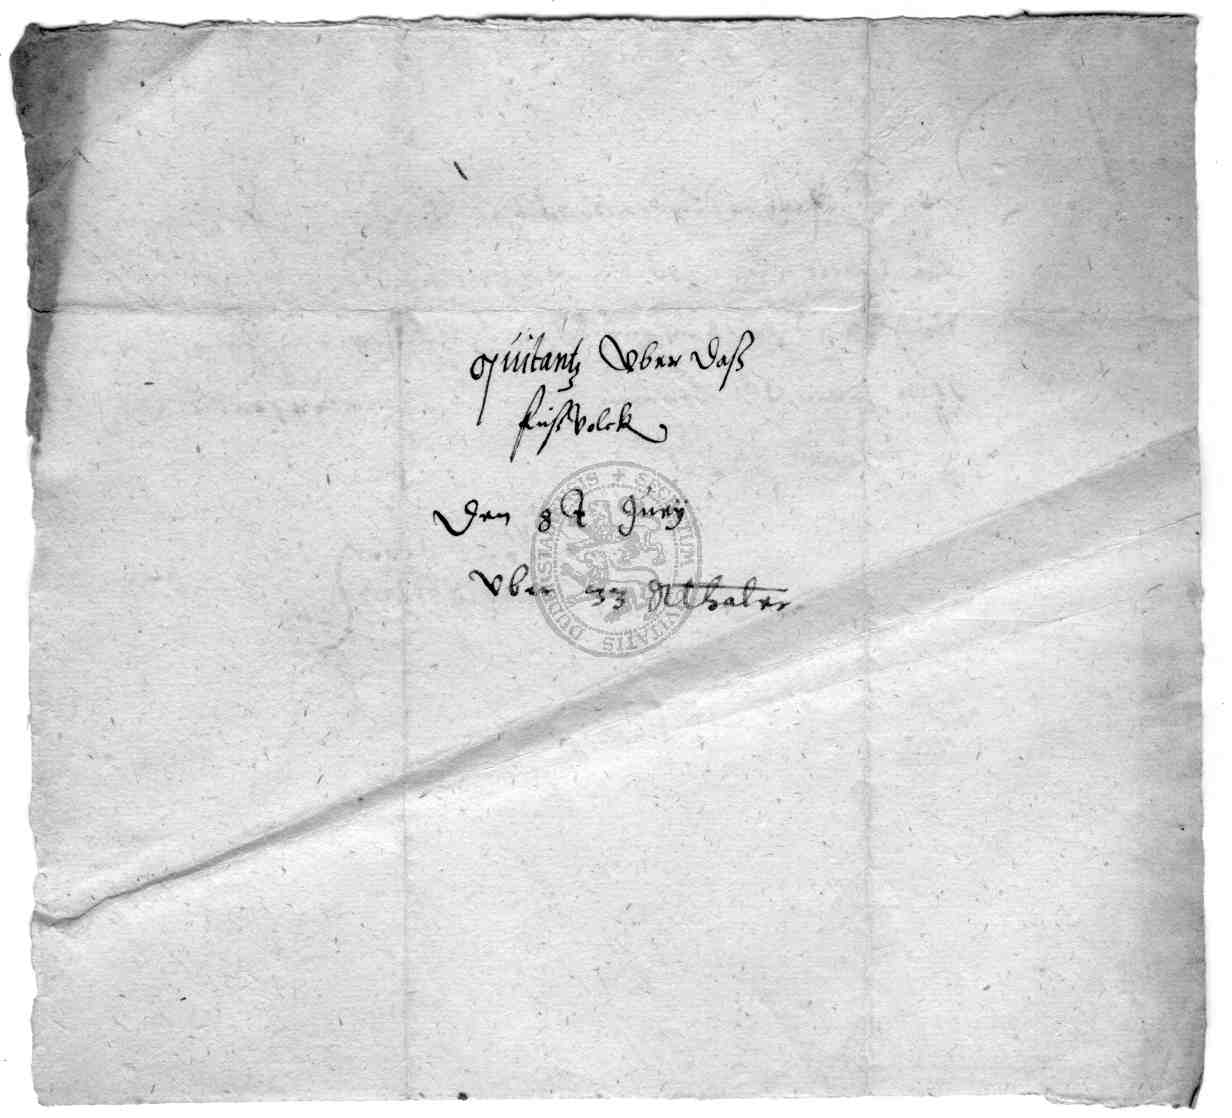 quitantz Vber daß
fußVolck
Den 8 Juny
Vber 33 Rthaler
SECRETUM CIVITATIS DUDERSTADENSIS